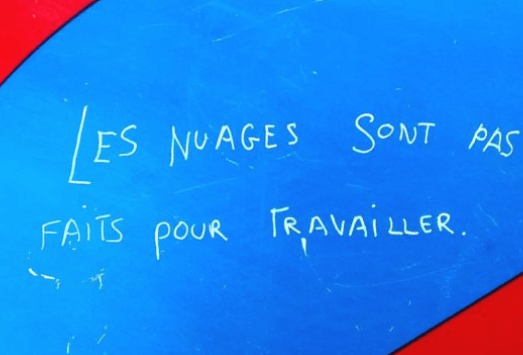 LES NUAGES SONT PAS
FAITS POUR TRAVAILLER.